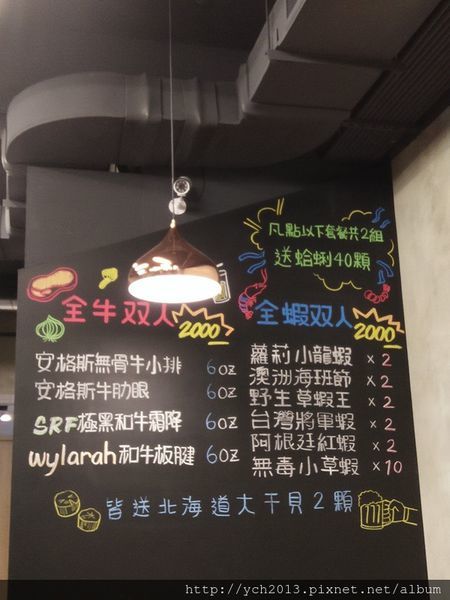 凡點以下套餐共2組
送蛤蜊40顆
全牛双人 2000
安格斯無骨牛小排 6oz
安格斯牛肋眼 6oz
SRF極黑和牛霜降 6oz
wylarah和牛板腱 6oz
全蝦双人 2000
蘿莉小龍蝦 x 2
澳洲海班節 x 2
野生草蝦王 x 2
台灣將軍蝦 x 2
阿根廷紅蝦 x 2
無毒小草蝦 x 10
皆送北海道大干貝2顆
http://ych2013.pixnet.net/album